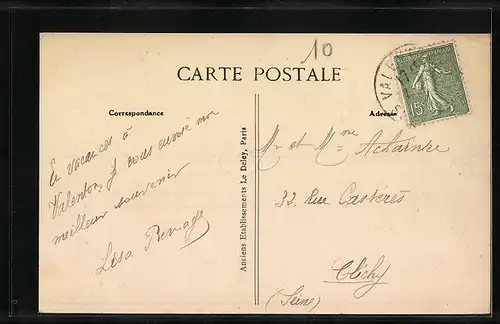 10
CARTE POSTALE
Correspondance
Adresse
VALE
15
En vacances à
Valenton, je vous envoie mon
meilleur souvenir
Lisa
Anciens Etablissements Le Deley, Paris
Mr et Mme Achainre
32, Rue Castérès
Clichy
(Seine)